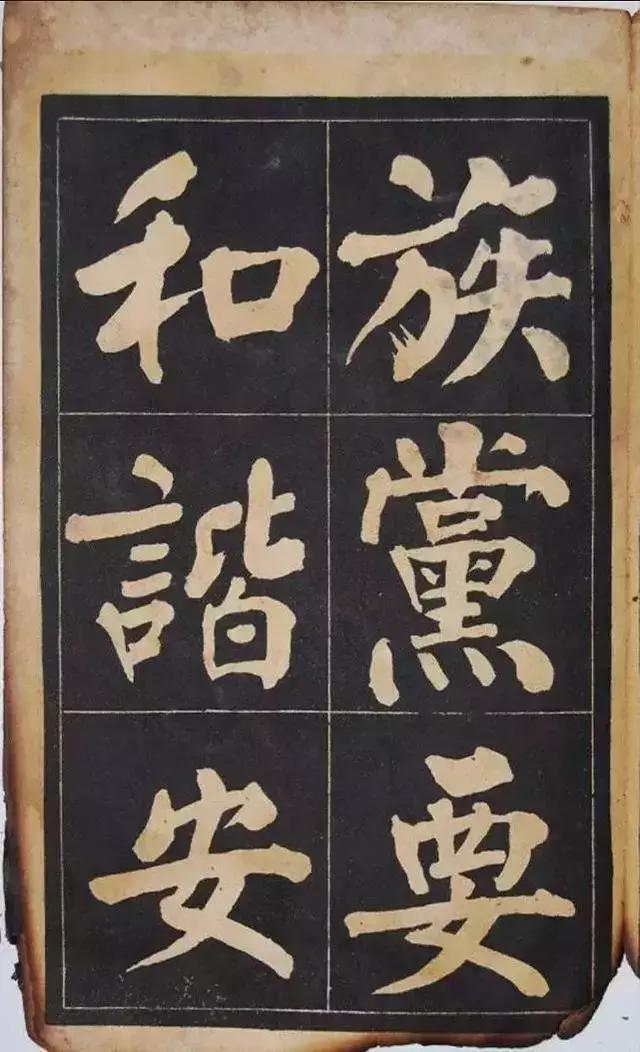 族黨要
和諧安